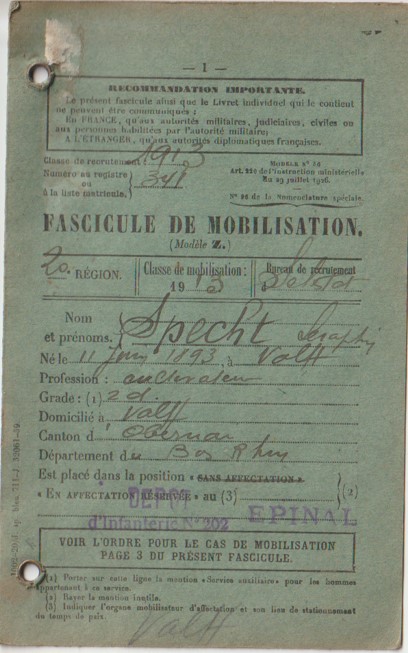 — 1 —
RECOMMANDATION IMPORTANTE.
Le présent fascicule ainsi que le Livret individuel qui le contient
ne peuvent être communiqués :
En FRANCE, qu'aux autorités militaires, judiciaires, civiles ou
aux personnes habilitées par l'autorité militaire;
A L'ÉTRANGER, qu'aux autorités diplomatiques françaises.
Classe de recrutement 1913
Numéro au registre
ou
à la liste matricule. 341
MODÈLE N° 28
Art. 220 de l'instruction ministérielle
du 23 juillet 1926.
N° 96 de la Nomenclature spéciale.
FASCICULE DE MOBILISATION.
(Modèle Z.)
20. RÉGION.
Classe de mobilisation :
1913
Bureau de recrutement
Nom
et prénoms. Specht Seraphin
Né le 11 juin 1893, à Valff
Profession : cultivateur
Grade: (1) 2 d.
Domicilié à Valff
Canton d'Obernai
Département du Bas Rhin
Est placé dans la position « SANS AFFECTATION ».
« EN AFFECTATION RÉSERVÉE » au (3) (2)
DEPOT
d'Infanterie N° 202 EPINAL
VOIR L'ORDRE POUR LE CAS DE MOBILISATION
PAGE 3 DU PRÉSENT FASCICULE.
(1) Porter sur cette ligne la mention «Service auxiliaire» pour les hommes
appartenant à ce service.
(2) Rayer la mention inutile.
(3) Indiquer l'organe mobilisateur d'affectation et son lieu de stationnement
du temps de paix.
Valff